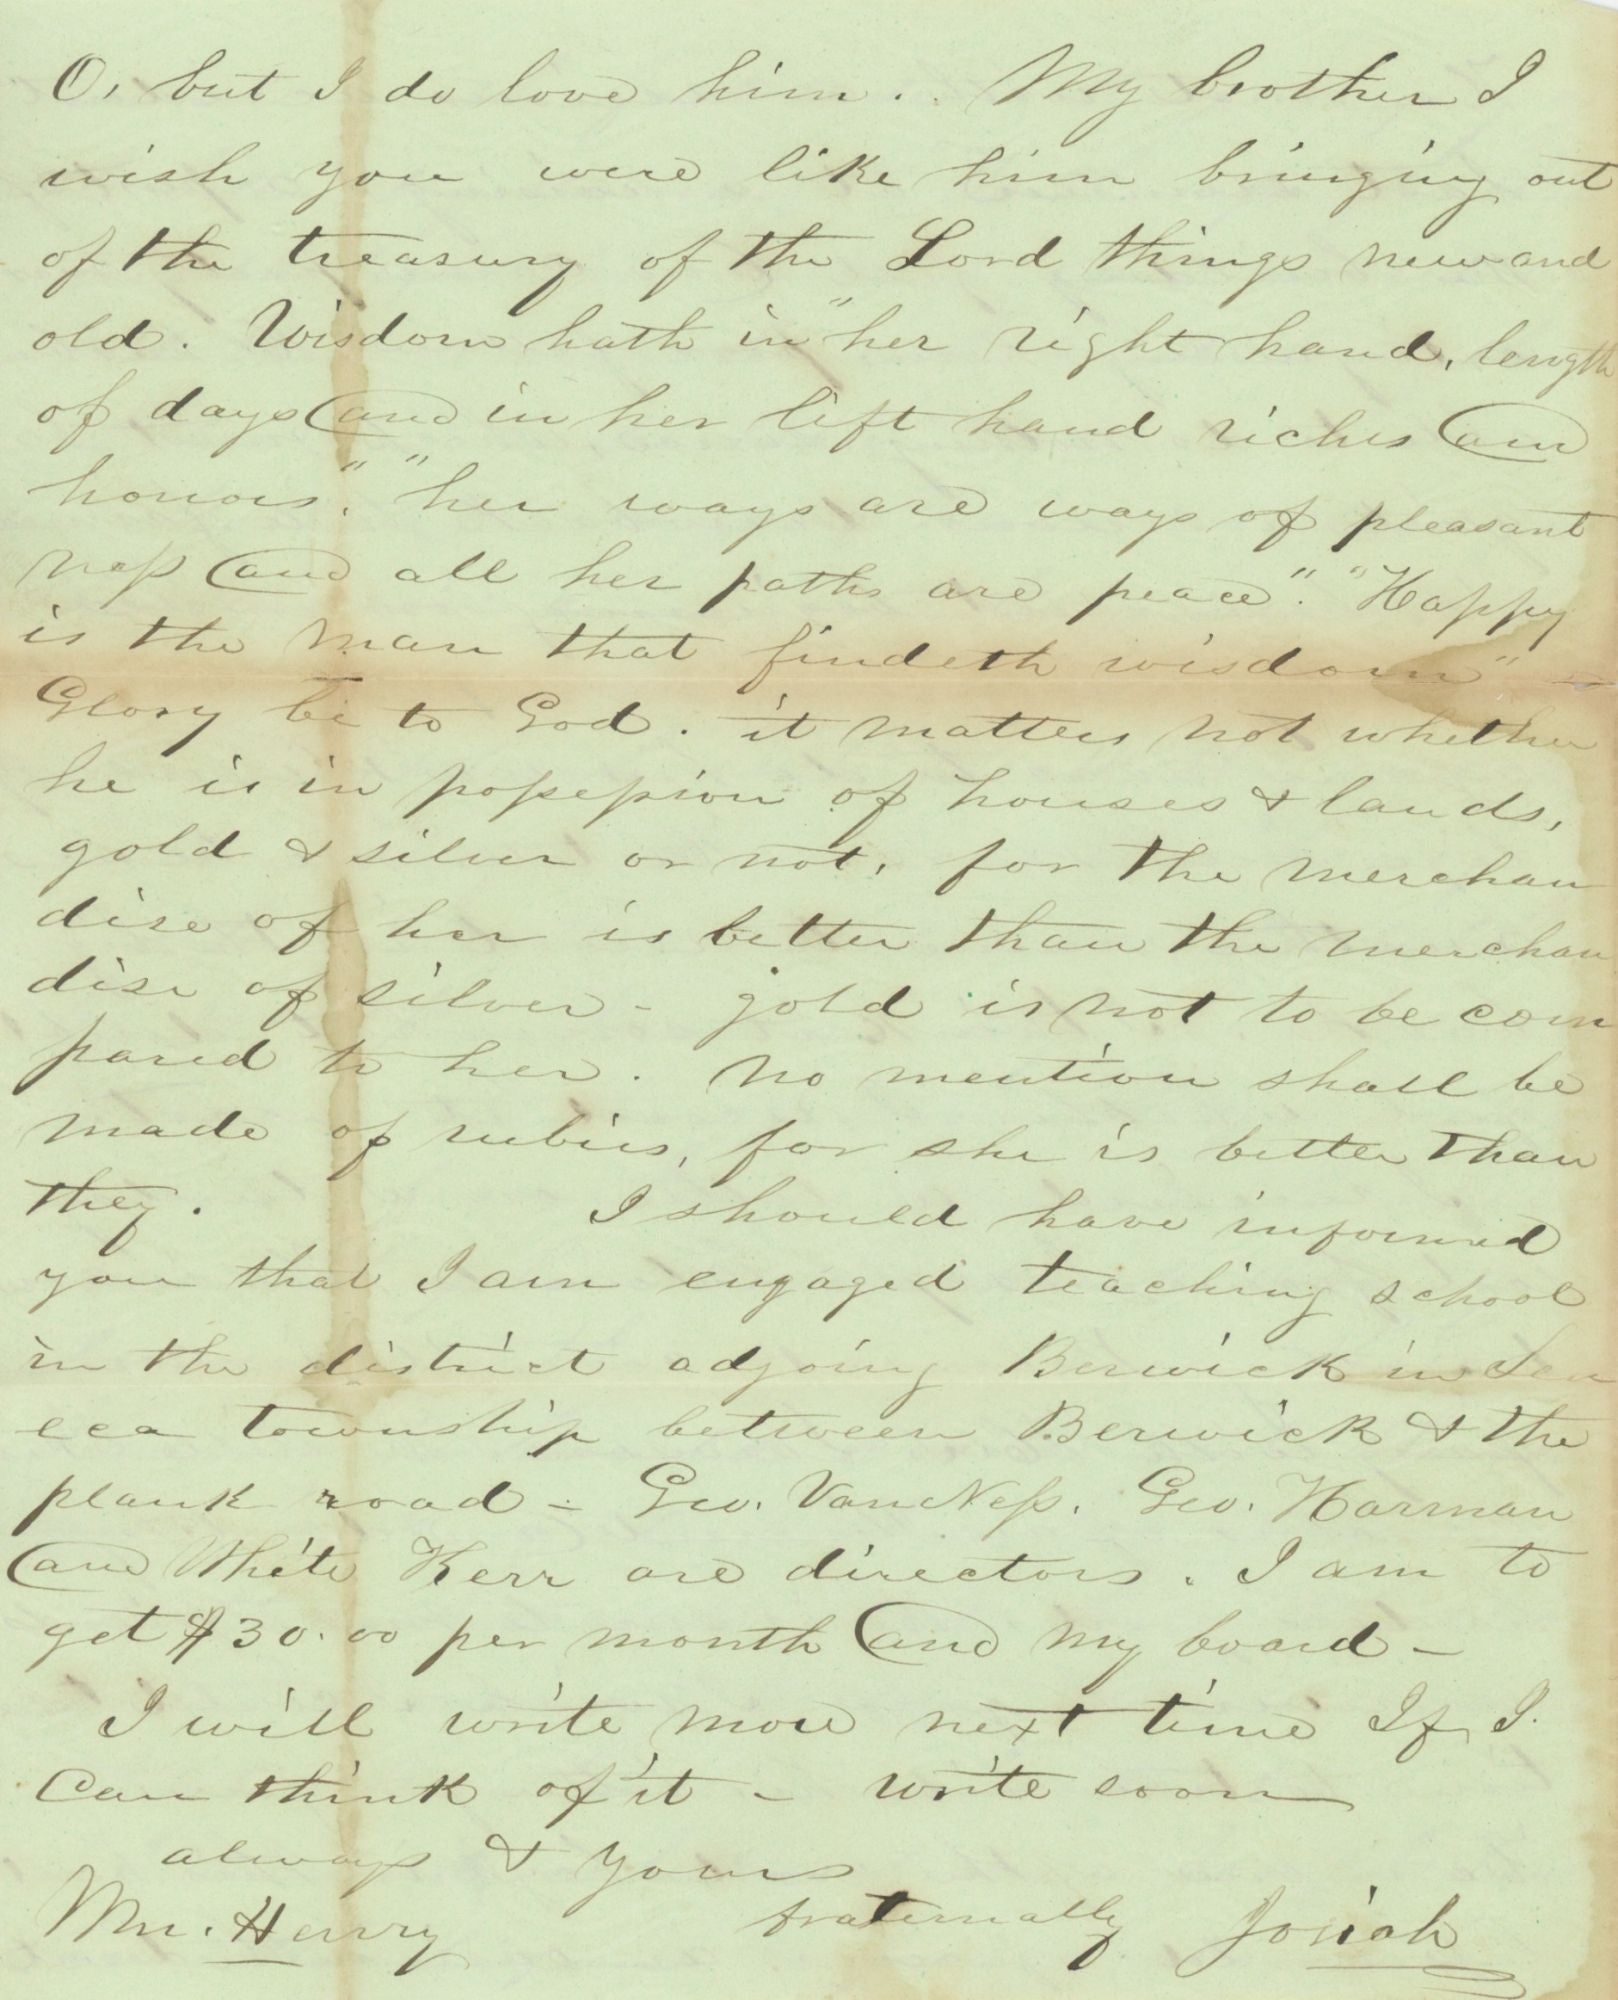 O, but I do love him. My brother I
wish you were like him bringing out
of the treasury of the Lord things new and
old. Wisdom hath in "her right hand, length
of days and in her left hand riches and
honors," "her ways are ways of pleasant
ness and all her paths are peace". "Happy
is the man that findeth wisdom" -
Glory be to God. it matters not whether
he is in possession of houses & lands,
gold & silver or not, for the merchan
dise of her is better than the merchan
dise of silver - gold is not to be com
pared to her. No mention shall be
made of rubies, for she is better than
they. I should have informed
you that I am engaged teaching school
in the district adjoing Berwick in Sen
eca township between Berwick & the
plank road - Geo. VanNess. Geo. Harman
and White Kerr are directors. I am to
get $30.00 per month and my board -
I will write more next time If I
can think of it - write soon
always & yours
Wm. Henry fraternally Josiah